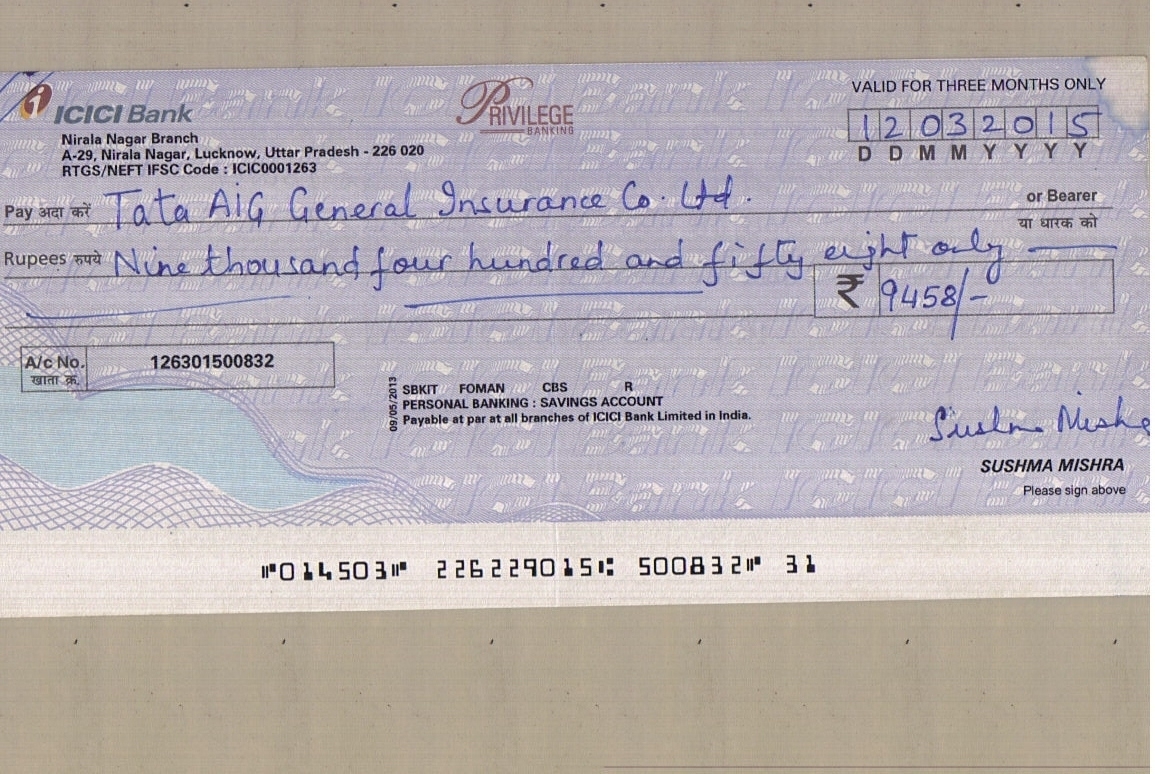 ICICI Bank
PRIVILEGE
BANKING
VALID FOR THREE MONTHS ONLY
Nirala Nagar Branch
A-29, Nirala Nagar, Lucknow, Uttar Pradesh - 226 020
RTGS/NEFT IFSC Code : ICIC0001263
12032015
D D M M Y Y Y Y
Pay अदा करें Tata AIG General Insurance Co. Ltd. or Bearer
या धारक को
Rupees रुपये Nine thousand four hundred and fifty eight only
₹ 9458/-
A/c No. 126301500832
खाता क्र.
09/05/2013
SBKIT FOMAN CBS R
PERSONAL BANKING : SAVINGS ACCOUNT
Payable at par at all branches of ICICI Bank Limited in India.
Sushma Mishra
SUSHMA MISHRA
Please sign above
⑈014503⑈ 226229015⑆ 500832⑈ 31